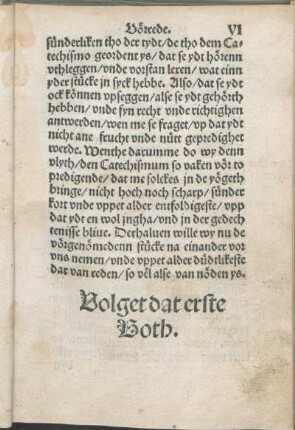 Vörrede. VI
sünderliken tho der tydt/de tho dem Ca-
techismo geordent ys/ dat se ydt hörenn
vthleggen/vnde vorstan leren/ wat einn
yder stücke jn syck hebbe. Also/dat se ydt
ock können vpseggen/alse se ydt gehörth
hebben/ vnde syn recht vnde richtighen
antwerden/wen me se fraget/vp dat ydt
nicht ane frucht vnde nütt geprediget
werde. Wenthe darumme do wy denn
vlyth/den Catechismum so vaken vör to
predigende/ dat me solckes jn de yögeth
bringe/nicht hoch noch scharp/ sünder
kort vnde vppet alder entfoldigeste/ vpp
dat ydt en wol jngha/vnd jn der gedech
tenisse bliue. Derhaluen wille wy nu de
vörgenömedenn stücke na einander vor
vns nemen/ vnde vppet alder düdtlikeste
dar van reden/so vêl alse van nöden ys.
Volget dat erste
Both.